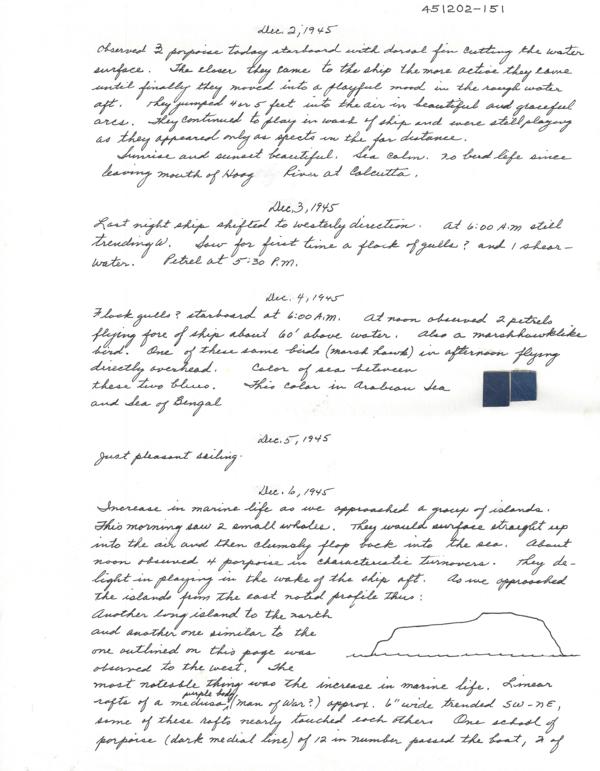 451202-151
Dec. 2, 1945
Observed 2 porpoise today starboard with dorsal fin cutting the water
surface. The closer they came to the ship the more active they came
until finally they moved into a playful mood in the rough water
aft. They jumped 4 or 5 feet into the air in beautiful and graceful
arcs. They continued to play in wash of ship and were still playing
as they appeared only as spects in the far distance.
Sunrise and sunset beautiful. Sea calm. No bird life since
leaving mouth of Hoog River at Calcutta.
Dec. 3, 1945
Last night ship shifted to westerly direction. At 6:00 A.M still
trending W. Saw for first time a flock of gulls? and 1 shear-
water. Petrel at 5:30 P.M.
Dec. 4, 1945
Flock gulls? starboard at 6:00 A.M. At noon observed 2 petrels
flying fore of ship about 60' above water. Also a marshhawklike
bird. One of these same birds (marsh hawk) in afternoon flying
directly overhead. Color of sea between
these two blues. This color in Arabian Sea
and Sea of Bengal
Dec. 5, 1945
Just pleasant sailing.
Dec. 6, 1945
Increase in marine life as we approached a group of islands.
This morning saw 2 small whales. They would surface straight up
into the air and then clumsly flop back into the sea. About
noon observed 4 porpoise in characteristic turnovers. They de-
light in playing in the wake of the ship aft. As we approached
the islands from the east noted profile thus:
Another long island to the north
and another one similar to the
one outlined on this page was
observed to the west. The
most noteable thing was the increase in marine life. Linear
purple body
rafts of a medusa, (man of War?) approx. 6" wide trended SW-NE,
some of these rafts nearly touched each other. One school of
porpoise (dark medial line) of 12 in number passed the boat, 2 of